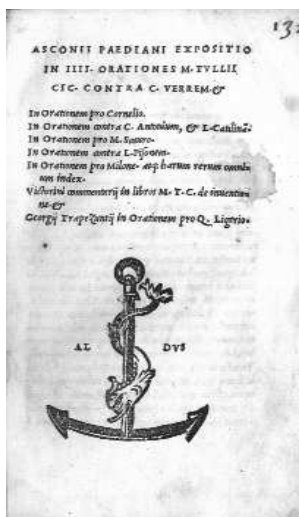 132
ASCONII PAEDIANI EXPOSITIO
IN IIII. ORATIONES M. TVLLII
CIC. CONTRA C. VERREM. &
In Orationem pro Cornelio.
In Orationem contra C. Antonium, & L. Catilinā.
In Orationem pro M. Scauro.
In Orationem contra L. Pisonem.
In Orationem pro Milone. atq; harum rerum omnium
um index.
Victorini commentarij in libros M. T. C. de inuentione
ne. &
Georgij Trapezuntij in Orationem pro Q. Ligario.
AL DVS